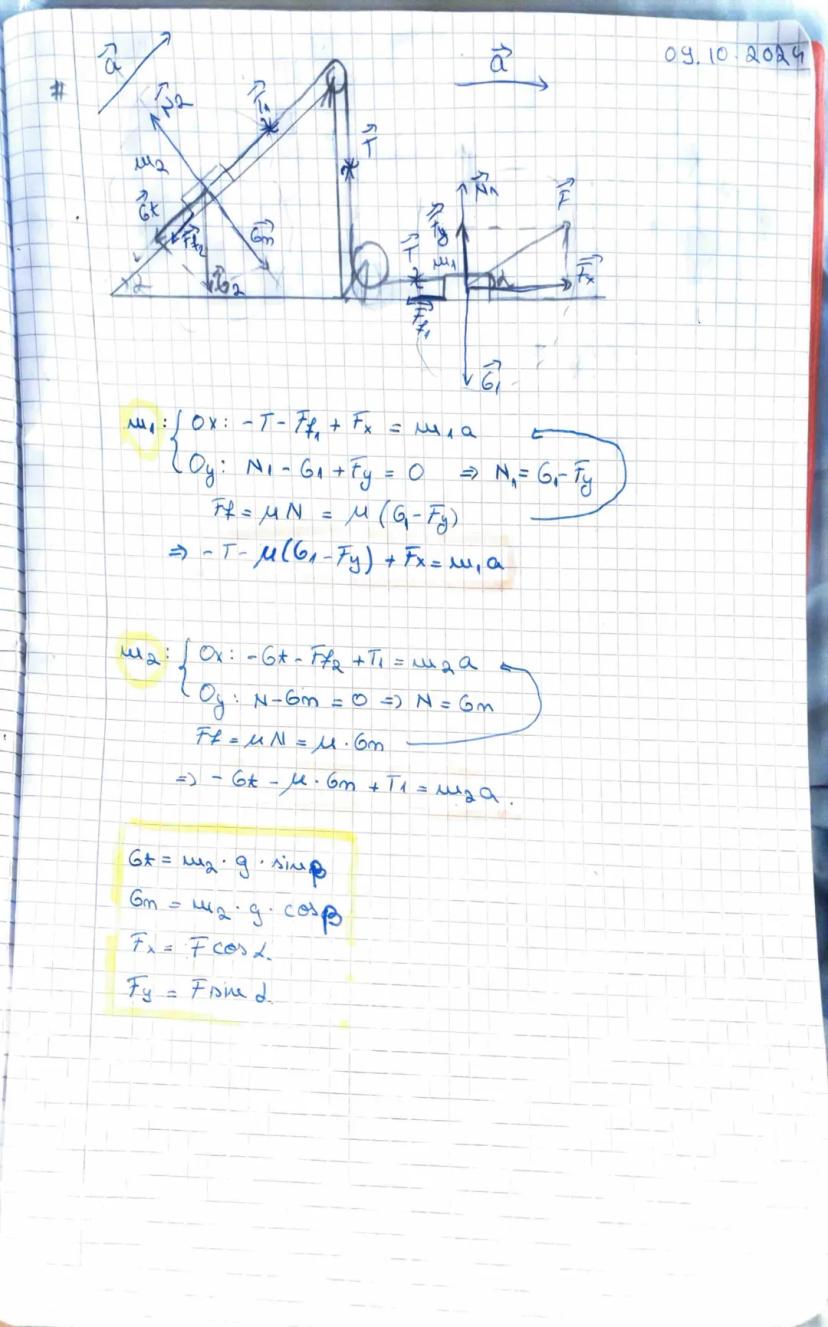 09.10.2024
#
a
a
N2
T1
T
m2
Gt
Ff2
Gn
G2
N1
Fy
F
T
m1
α
Fx
Ff1
G1
m1: { Ox: -T - Ff1 + Fx = m1a
Oy: N1 - G1 + Fy = 0 ⇒ N1 = G1 - Fy
Ff = μN = μ(G1 - Fy)
⇒ -T - μ(G1 - Fy) + Fx = m1a
m2: { Ox: -Gt - Ff2 + T1 = m2a
Oy: N - Gn = 0 => N = Gn
Ff = μN = μ · Gn
=> - Gt - μ · Gn + T1 = m2a.
Gt = m2 · g · sinβ
Gn = m2 · g · cosβ
Fx = F cos α.
Fy = F sin α.